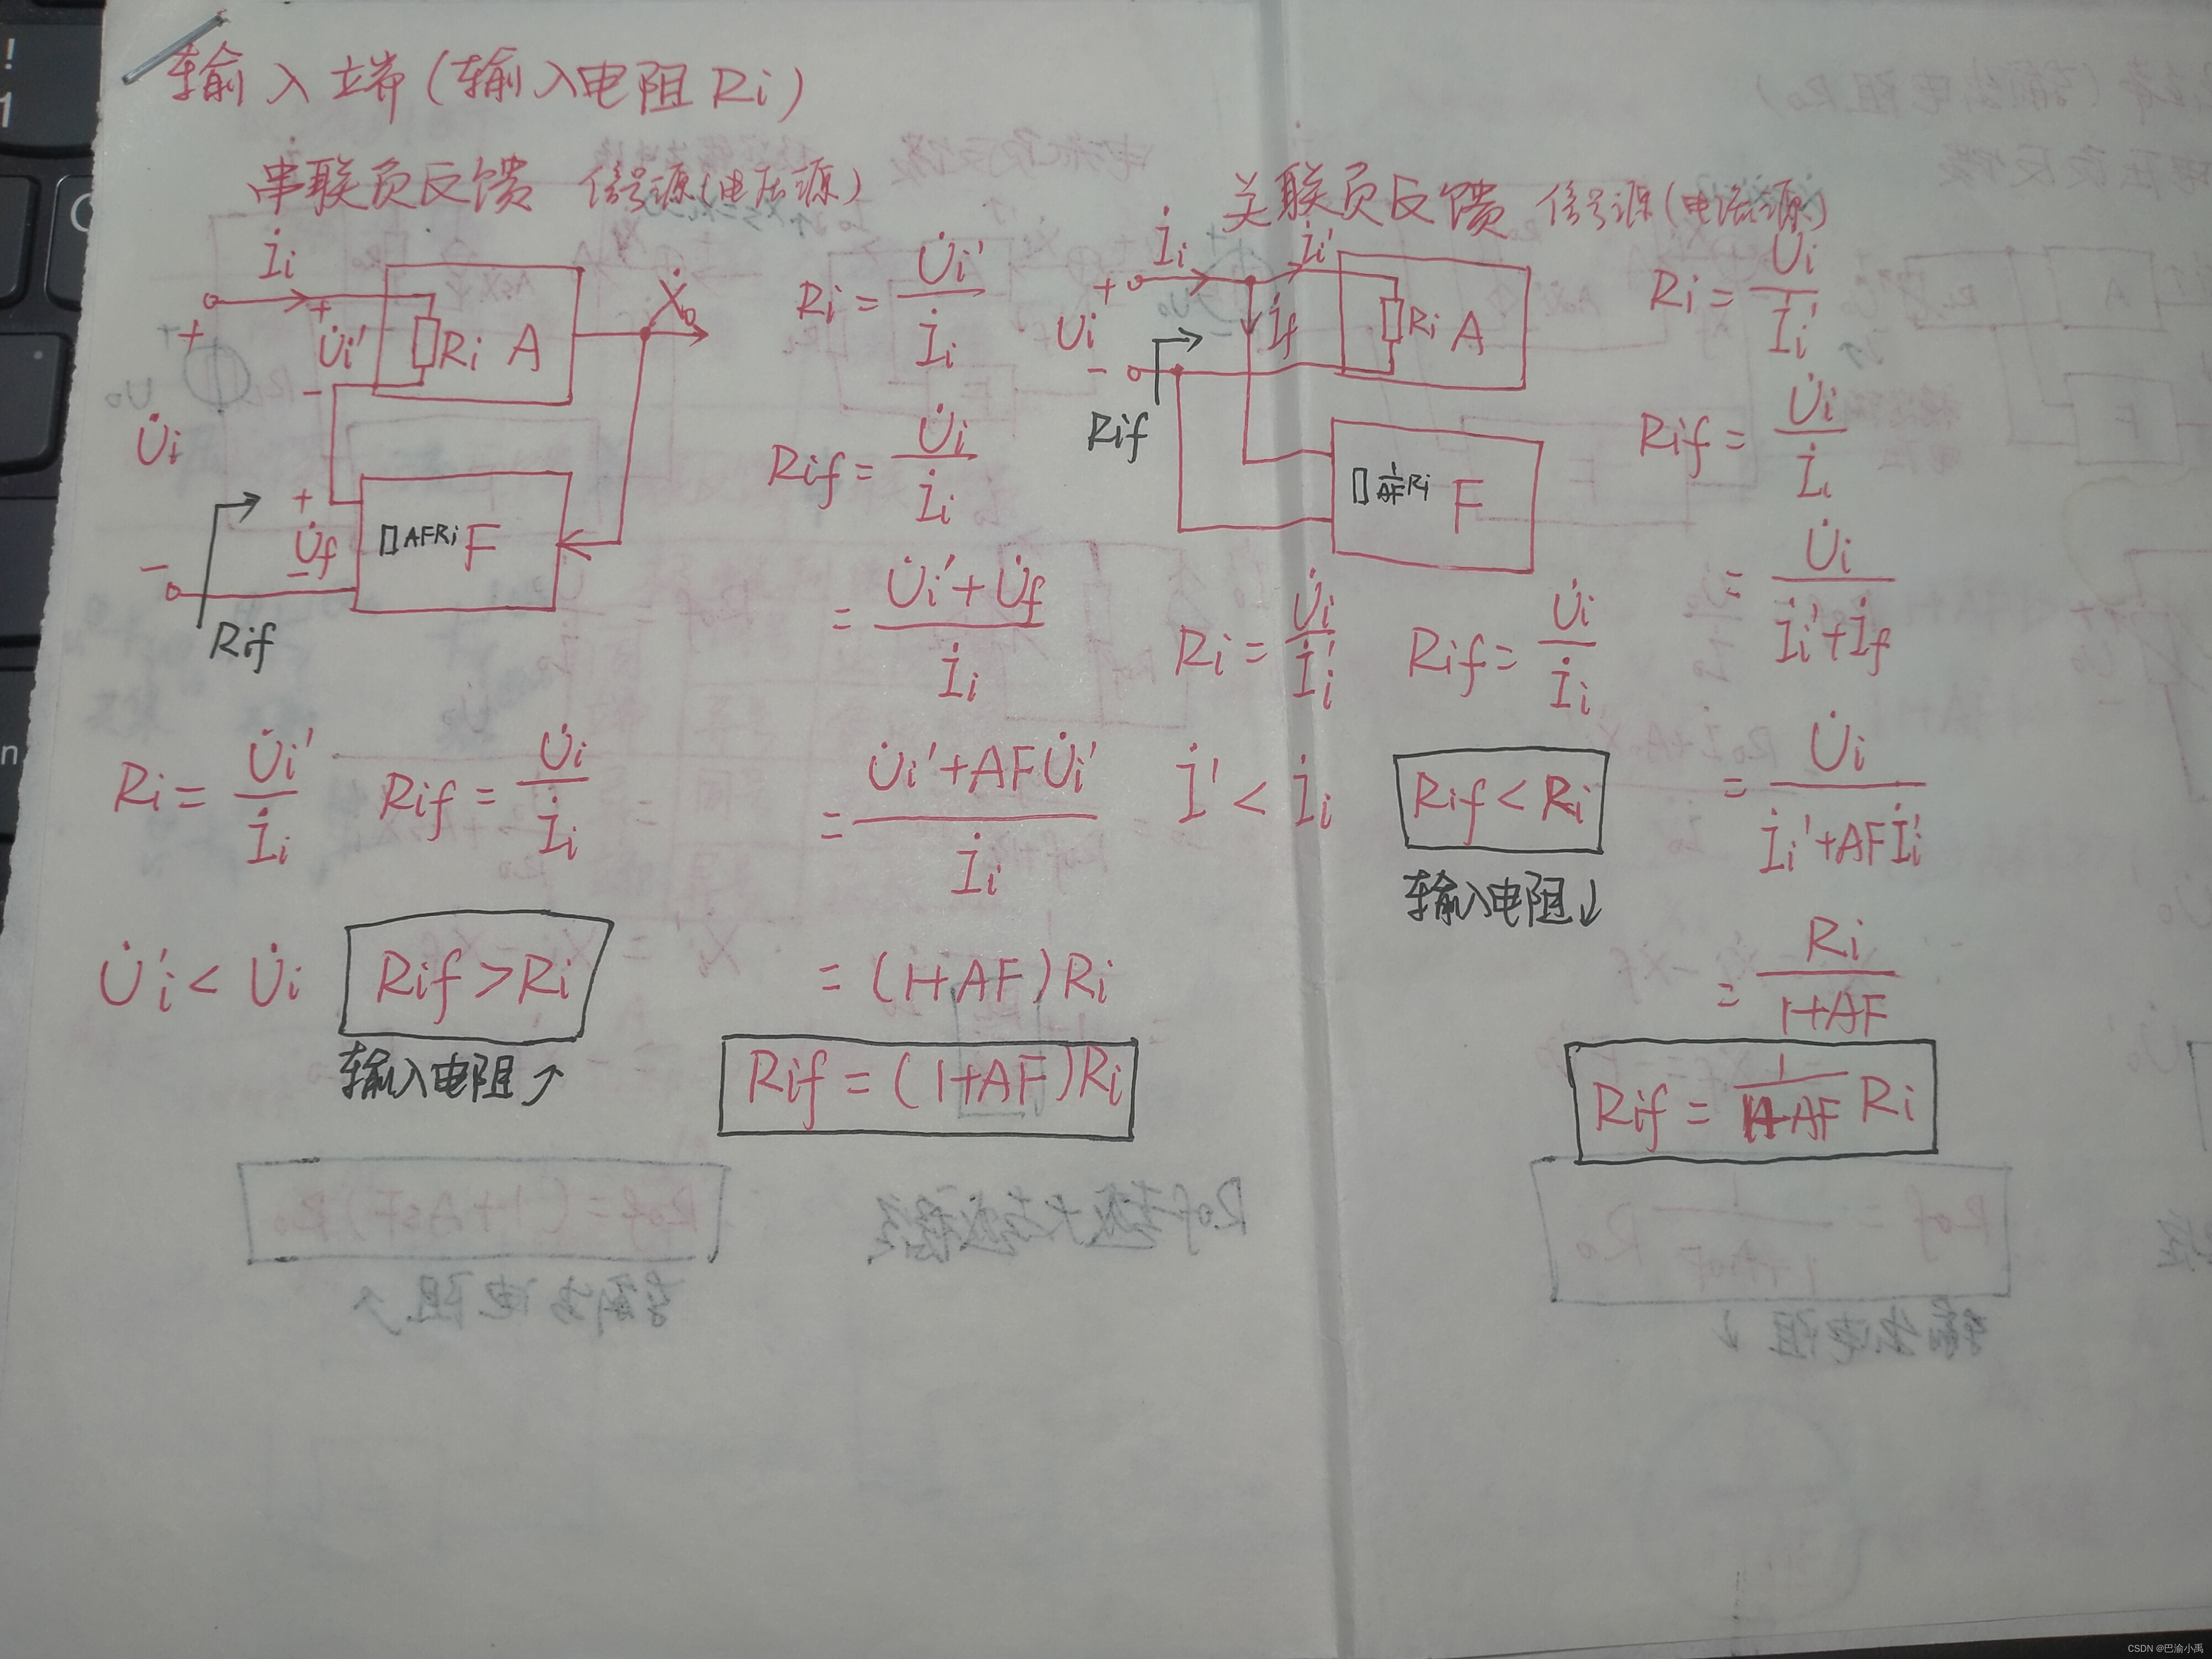 输入端(输入电阻 Ri)
串联负反馈 信号源(电压源)
İi
+
U̇i'
-
Ri A
Ẋo
+
U̇i
-
+
U̇f
-
AFRi F
Rif
Ri = U̇i' / İi
Rif = U̇i / İi
= (U̇i' + U̇f) / İi
= (U̇i' + AFU̇i') / İi
= (1+AF)Ri
Rif = (1+AF)Ri
Ri = U̇i' / İi Rif = U̇i / İi
U̇'i < U̇i Rif > Ri
输入电阻↑
关联负反馈 信号源(电流源)
İi İi'
+
Ui
-
İf
Ri A
Rif
1/AF Ri F
Ri = U̇i / İi'
Rif = U̇i / İi
= U̇i / (İi' + İf)
= U̇i / (İi' + AFİi')
= Ri / (1+AF)
Rif = 1 / (1+AF) Ri
Ri = U̇i / İ'i Rif = U̇i / İi
İ' < İi Rif < Ri
输入电阻↓
CSDN @巴渝小禹